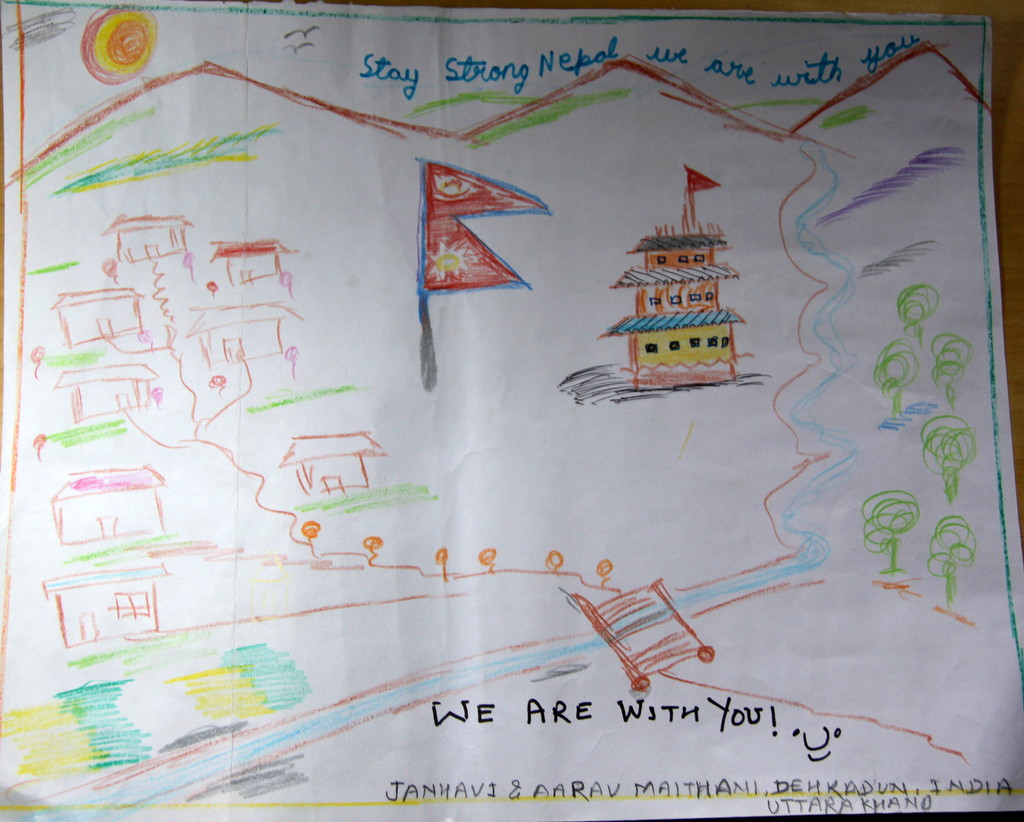 Stay Strong Nepal we are with you
WE ARE WITH YOU!
JANHAVI & AARAV MAITHANI, DEHRADUN, INDIA
UTTARAKHAND